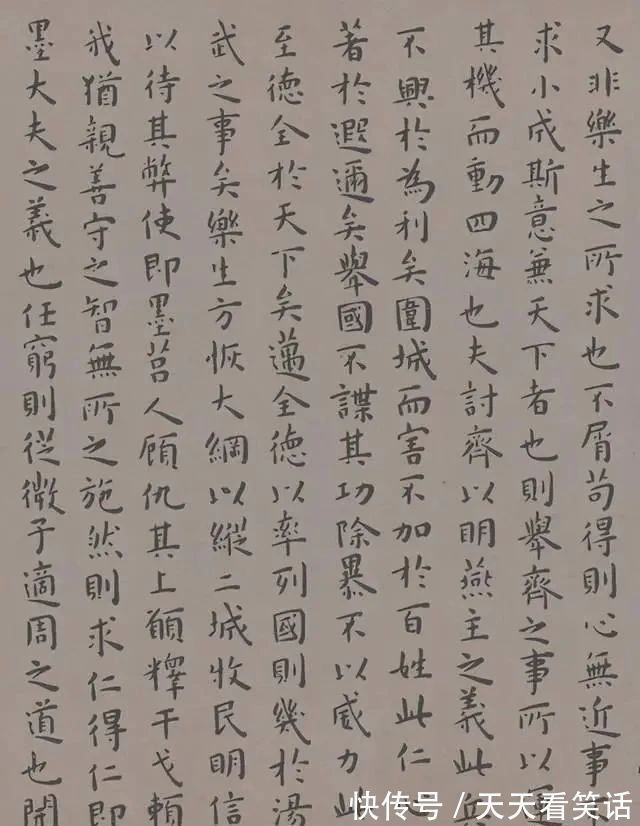 又非樂生之所求也不屑苟得則心無近事
求小成斯意兼天下者也則舉齊之事所以運
其機而動四海也夫討齊以明燕主之義此兵
不興於為利矣圍城而害不加於百姓此仁心
著於遐邇矣舉國不謀其功除暴不以威力此
至德全於天下矣邁全德以率列國則幾於湯
武之事矣樂生方恢大綱以縱二城收民明信
以待其弊使即墨莒人顧仇其上願釋干戈賴
我猶親善守之智無所之施然則求仁得仁即
墨大夫之義也任窮則從微子適周之道也開
快传号/天天看笑话